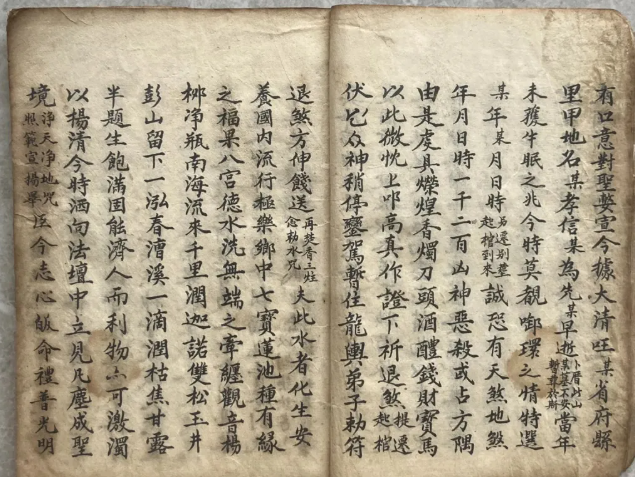 有口意對聖敷宣今據大清旺某省府縣
里甲地名某孝信某為先某早逝卜厝此山某墓不安暫葬於斯當年
未獲牛眠之兆今時莫覩啣環之情特選
某年某月日時另遷別塋起棺到來誠恐有天煞地煞
年月日時一千二百凶神惡殺或占方隅
由是虔具爗煌香燭刀頭酒醴錢財寶馬
以此微忱上叩高真作證下祈退煞掟遷起棺
伏乞众神稍停鑾駕暫住龍輿弟子勅符
退煞方伸餞送再焚香三炷念勅水咒夫此水者化生安
養國内流行極樂鄉中七寶蓮池種有緣
之福果八宮德水洗無端之牽纏觀音楊
柳净瓶南海流來千里潤迦諾雙松玉井
彭山留下一泓春漕溪一滴潤枯焦甘露
半題生飽滿因能濟人而利物亦可激濁
以楊清今時洒向法壇中立見凡塵成聖
境净天净地咒照範宣揚畢臣今志心皈命禮普光明